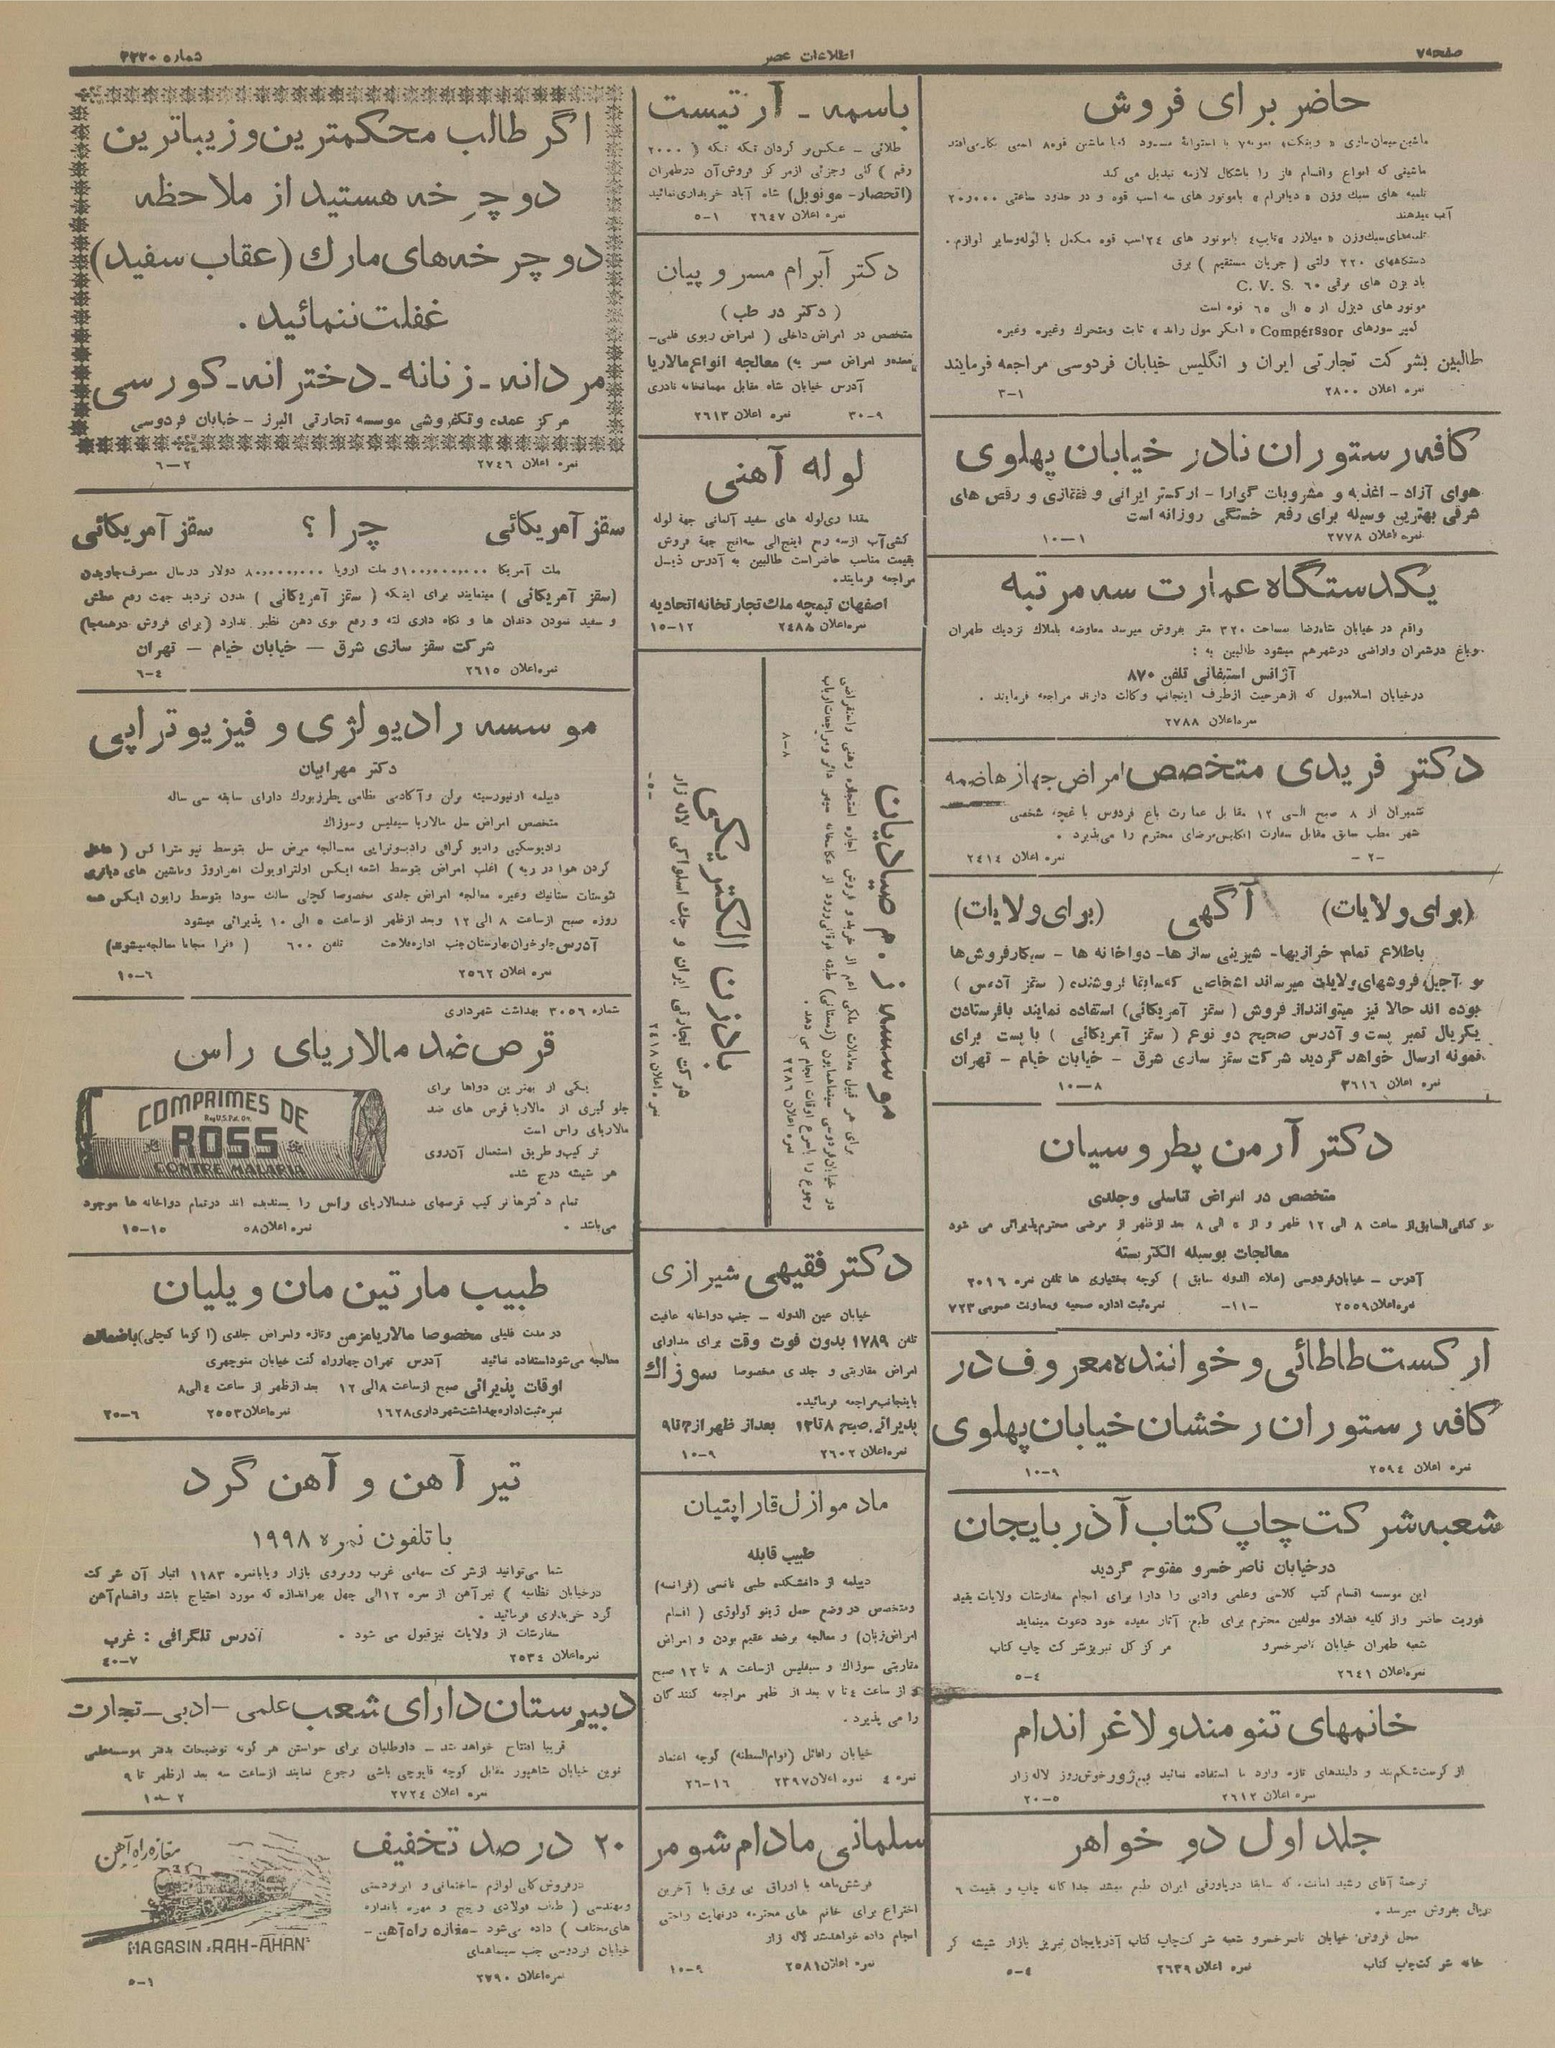 صفحه ۷
اطلاعات عصر
شماره ۴۳۳۰
حاضر برای فروش
ماشینی که انواع واقسام فاز را باشکال لازمه تبدیل می کند
تلمبه های سبك وزن « دیافرام » باموتور های سه اسب قوه و در حدود ساعتی ۲۰٫۰۰۰
آب میدهند
دستگاههای ۲۲۰ ولتی ( جریان مستقیم ) برق
باد بزن های برقی ۶۰ C. V. S.
موتور های دیزل از ۵ الی ۶۵ قوه است
کمپر سورهای Compérssor « اینگر سول راند » ثابت ومتحرك وغیره وغیره
طالبین بشرکت تجارتی ایران و انگلیس خیابان فردوسی مراجعه فرمایند
نمره اعلان ۲۸۰۰
۳-۱
کافه رستوران نادر خیابان پهلوی
هوای آزاد - اغذیه و مشروبات گوارا - ارکستر ایرانی و قفقازی و رقص های
شرقی بهترین وسیله برای رفع خستگی روزانه است
نمره اعلان ۲۷۷۸
۱۰-۱
یکدستگاه عمارت سه مرتبه
واقع در خیابان شاهرضا بمساحت ۳۲۰ متر بفروش میرسد معاوضه باملاك نزدیك طهران
وباغ درشمران واراضی درشهرهم میشود طالبین به :
آژانس استیفانی تلفن ۸۷۰
درخیابان اسلامبول که ازهرحیث ازطرف اینجانب وکالت دارند مراجعه فرمایند .
نمره اعلان ۲۷۸۸
دکتر فریدی متخصص امراض جهاز هاضمه
شمیران از ۸ صبح الی ۱۲ مقابل عمارت باغ فردوس باغچه شخصی
شهر مطب سابق مقابل سفارت انگلیس مرضای محترم را می‌پذیرد .
-۲-
نمره اعلان ۲۴۱۴
(برای ولایات) آگهی (برای ولایات)
باطلاع تمام خرازیها - شیرینی ساز ها - دواخانه ها - سیگارفروش‌ها
و آجیل فروشهای ولایات میرساند اشخاصی که سابقا فروشنده ( سقز آدمس )
بوده اند حالا نیز میتوانند از فروش ( سقز آمریکائی ) استفاده نمایند بافرستادن
یکریال تمبر پست و آدرس صحیح دو نوع ( سقز آمریکائی ) با پست برای
نمونه ارسال خواهد گردید شرکت سقز سازی شرق - خیابان خیام - تهران
نمره اعلان ۲۶۱۶
۱۰-۸
دکتر آرمن پطروسیان
متخصص در امراض تناسلی وجلدی
کمافی‌السابق از ساعت ۸ الی ۱۲ ظهر و از ۵ الی ۸ بعد از ظهر از مرضی محترم پذیرائی می شود
معالجات بوسیله الکتریسته
آدرس - خیابان فردوسی (علاء الدوله سابق ) کوچه بختیاری ها تلفن نمره ۲۰۱۶
نمره اعلان ۲۵۵۹
-۱۱-
نمره ثبت اداره صحیه ومعاونت عمومی ۷۲۳
ارکست طاطائی و خواننده معروف در
کافه رستوران رخشان خیابان پهلوی
نمره اعلان ۲۵۹۴
۱۰-۹
شعبه شرکت چاپ کتاب آذربایجان
درخیابان ناصر خسرو مفتوح گردید
این موسسه اقسام کتب کلاسی وعلمی وادبی را دارا برای انجام سفارشات ولایات بقید
فوریت حاضر واز کلیه فضلاو مولفین محترم برای طبع آثار مفیده خود دعوت مینماید
شعبه طهران خیابان ناصرخسرو مرکز کل تبریز شرکت چاپ کتاب
نمره اعلان ۲۶۴۱
۵-۴
خانمهای تنومند ولاغر اندام
از کرست شکم‌بند و دلبندهای تازه وارد ما استفاده نمائید بیژور خوش‌روز لاله زار
نمره اعلان ۲۶۱۲
۲۰-۵
جلد اول دو خواهر
ترجمهٔ آقای رشید امانت که سابقا درپاورقی ایران طبع میشد جداگانه چاپ و بقیمت ۶
ریال بفروش میرسد .
محل فروش: خیابان ناصرخسرو شعبه شرکت چاپ کتاب آذربایجان تبریز بازار شیشه گر
خانه شرکت چاپ کتاب
نمره اعلان ۲۶۳۹
۵-۴
باسمه - آرتیست
طلائی - عکس‌بر گردان تکه تکه ( ۲۰۰۰
رقم ) کلی وجزئی ازمرکز فروش آن درطهران
(انحصار - مونوپل) شاه آباد خریداری نمائید
نمره اعلان ۲۶۴۷
۵-۱
دکتر آبرام مسروپیان
( دکتر در طب )
متخصص در امراض داخلی ( امراض ریوی قلبی -
معده و امراض مسریه ) معالجه انواع مالاریا
آدرس خیابان شاه مقابل مهمانخانه نادری
نمره اعلان ۲۶۱۳
۳۰-۹
لوله آهنی
مقداری لوله های سفید آلمانی جهة لوله
کشی آب ازسه ربع اینچ الی سه انچ جهة فروش
بقیمت مناسب حاضر است طالبین به آدرس ذیل
مراجعه فرمایند.
اصفهان تیمچه ملك تجارتخانه اتحادیه
نمره اعلان ۲۴۸۸
۱۵-۱۲
موسسه ز. م صیادیان
برای هر قبیل معاملات ملکی اعم از خرید و فروش اجاره استجاره رهنی واستقراضی
در خیابان فردوسی سینماهمایون (زمستانی) طبقه فوقانی ورود از عکاسخانه سپهر دائر ومراجعات ارباب
رجوع را باسرع اوقات انجام می دهد .
نمره اعلان ۲۲۸۶
۸-۸
بادزن الکتریکی
شرکت تجارتی ایران و چك اسلواکی لاله زار
نمره اعلان ۲۴۱۸
-۵-
دکتر فقیهی شیرازی
خیابان عین الدوله - جنب دواخانه عافیت
تلفن ۱۷۸۹ بدون فوت وقت برای مداوای
امراض مقاربتی و جلدی مخصوصا سوزاك
باینجانب مراجعه فرمائید.
پذیرائی صبح ۸ تا ۱۲ بعداز ظهر از ۳ تا ۹
نمره اعلان ۲۶۰۲
۱۰-۹
مادموازل قاراپتیان
طبیب قابله
دیپلمه از دانشکده طبی نانسی (فرانسه)
ومتخصص در وضع حمل ژینو کولوژی ( اقسام
امراض زنان ) و معالجه برضد عقیم بودن و امراض
مقاربتی سوزاك و سیفلیس ازساعت ۸ تا ۱۲ صبح
و از ساعت ٤ تا ۷ بعد از ظهر مراجعه کنندگان
را می پذیرد .
خیابان رافائل (قوام السطنه) کوچه اعتماد
نمره ٤ نمره اعلان ۲۳۹۷ ۲۶-۱۶
سلمانی مادام شومر
فرشش‌ماهه با اوراق بی برق با آخرین
اختراع برای خانم های محترمه درنهایت راحتی
انجام داده خواهد شد لاله زار
نمره اعلان ۲۵۸۱
۱۰-۹
اگر طالب محکمترین وزیباترین
دوچرخه هستید از ملاحظه
دوچرخه‌های مارك (عقاب سفید)
غفلت ننمائید.
مردانه - زنانه - دخترانه - کورسی
مرکز عمده وتکفروشی موسسه تجارتی البرز - خیابان فردوسی
نمره اعلان ۲۷٤۶
۶-۲
سقز آمریکائی چرا ؟ سقز آمریکائی
ملت آمریکا ۱۰۰٫۰۰۰٫۰۰۰ و ملت اروپا ۸۰٫۰۰۰٫۰۰۰ دولار درسال مصرف جاویدن
(سقز آمریکائی ) مینمایند برای اینکه ( سقز آمریکائی ) بدون تردید جهت رفع عطش
و سفید نمودن دندان ها و نگاه داری لثه و رفع بوی دهن نظیر ندارد (برای فروش درهمه‌جا)
شرکت سقز سازی شرق — خیابان خیام — تهران
نمره اعلان ۲۶۱۵
۶-٤
موسسه رادیولژی و فیزیوتراپی
دکتر مهرابیان
دیپلمه اونیورسیته برلن و آکادمی نظامی پطرزبورك دارای سابقه سی ساله
متخصص امراض سل مالاریا سیفلیس وسوزاك
رادیوسکپی رادیو گرافی رادیوترایی معالجه مرض سل بتوسط نیو متراکس ( داخل
کردن هوا در ریه ) اغلب امراض بتوسط اشعه ایکس اولتراویولت انفراروژ وماشین های دیاتری
روزه صبح ازساعت ۸ الی ۱۲ وبعد ازظهر ازساعت ۵ الی ۱۰ پذیرائی میشود
آدرس جلوخوان بهارستان جنب اداره فلاحت تلفن ۶۰۰ ( فقرا مجانا معالجه میشوند)
نمره اعلان ۲۵۶۲
۱۰-۶
شماره ۳۰۵۶ بهداشت شهرداری
قرص ضد مالاریای راس
یکی از بهترین دواها برای
جلوگیری از مالاریا قرص های ضد
مالاریای راس است
ترکیب و طریق استعمال آن روی
هر شیشه درج شده.
COMPRIMES DE
ROSS
CONTRE MALARIA
تمام دکترها ترکیب قرصهای ضدمالاریای راس را پسندیده اند درتمام دواخانه ها موجود
می‌باشد .
نمره اعلان ۵۸
۱۵-۱۵
طبیب مارتین مان ویلیان
در مدت قلیلی مخصوصا مالاریا مزمن وتازه وامراض جلدی (اکزما کچلی) باضمانت
معالجه می‌شود استفاده نمائید آدرس تهران چهارراه کنت خیابان منوچهری
اوقات پذیرائی صبح ازساعت ۸ الی ۱۲ بعد ازظهر از ساعت ٤ الی ۸
نمره ثبت اداره بهداشت شهرداری ۱۶۲۸ نمره اعلان ۲۵۵۳
۲۰-۶
تیر آهن و آهن گرد
باتلفون نمره ۱۹۹۸
شما می‌توانید ازشرکت سهامی غرب روبروی بازار ویابانمره ۱۱۸۳ انبار آن شرکت
درخیابان نظامیه ) تیر آهن از نمره ۱۲ الی چهل بهراندازه که مورد احتیاج باشد واقسام آهن
گرد خریداری فرمائید .
سفارشات از ولایات نیز قبول می شود . آدرس تلگرافی : غرب
نمره اعلان ۲۵۳٤
٤۰-۷
دبیرستان دارای شعب علمی - ادبی - تجارت
قریبا افتتاح خواهد شد - داوطلبان برای خواستن هر گونه توضیحات بدفتر موسسه علمی
نوین خیابان شاهپور مقابل کوچه قاپوچی باشی رجوع نمایند ازساعت سه بعد ازظهر تا ۹
نمره اعلان ۲۷۲٤
۱۰-۲
۲۰ درصد تخفیف
درفروش کلی لوازم ساختمانی و ابریدستی
ومهندسی ( طناب فولادی و پیچ و مهره باندازه
های مختلف ) داده می‌شود - مغازه راه آهن -
خیابان فردوسی جنب سینماهمای
نمره اعلان ۲۷۹۰
۵-۱
مغازه راه آهن
MAGASIN „RAH-AHAN"